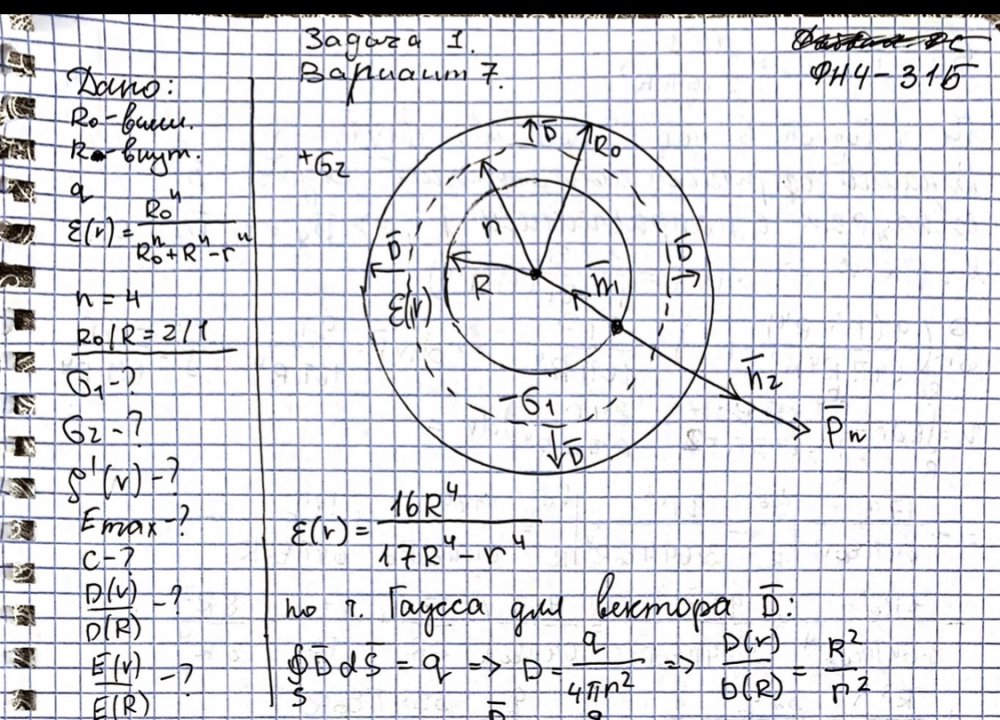 Задача 1.
Вариант 7.
ФН4-31Б
Дано:
R₀-внеш.
R-внут.
q
ε(r) = R₀ⁿ / (R₀ⁿ + Rⁿ - rⁿ)
n = 4
R₀/R = 2/1
σ₁-?
σ₂-?
ρ'(r)-?
Emax-?
C-?
D(r)/D(R) -?
E(r)/E(R) -?
+σ₂
D̄
R₀
r
D̄
D̄
R
n̄₁
ε(r)
n̄₂
-σ₁
P̄n
D̄
ε(r) = 16R⁴ / (17R⁴ - r⁴)
по т. Гаусса для вектора D̄:
∮ₛ D̄dS̄ = q => D = q / 4πr² => D(r)/D(R) = R²/r²